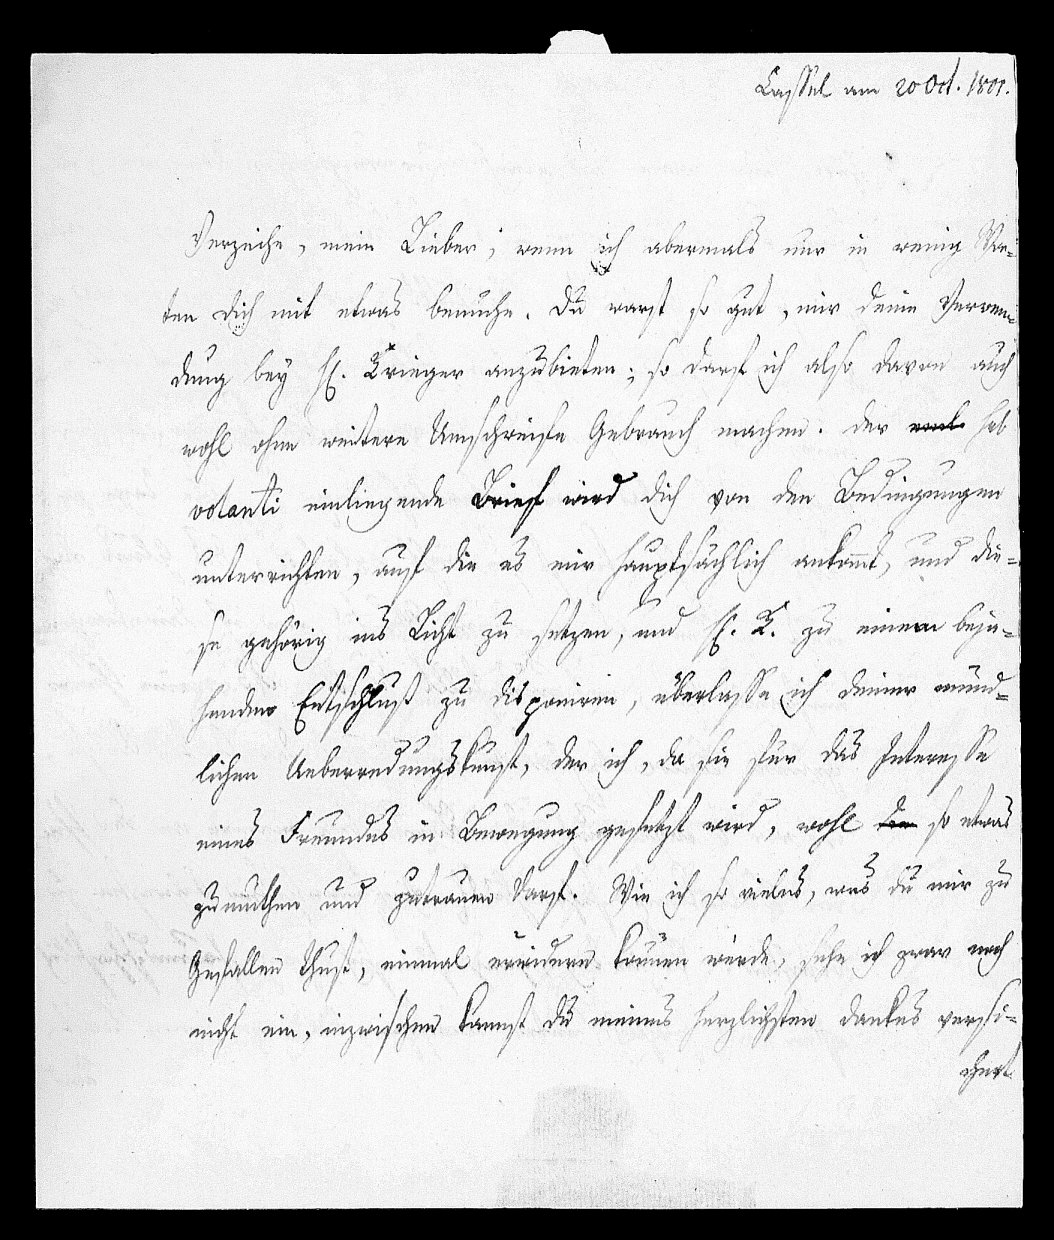 Cassel am 20 Oct. 1801.
Verzeihe, mein Lieber, wenn ich abermals nur in wenig Wor-
ten Dich mit etwas bemühe. Du warst so gut, mir deine Verwen-
dung bey H. Krieger anzubieten; so darf ich also davon auch
wohl ohne weitere Umschweife Gebrauch machen. Der sub
volanti einliegende Brief wird dich von den Bedingungen
unterrichten, auf die es mir hauptsächlich ankom̅t, und die-
se gehörig ins Licht zu setzen, und H. K. zu einem beja-
henden Entschluß zu disponiren, überlasse ich deiner münd-
lichen Ueberredungskunst, der ich, da sie für das Interesse
eines Freundes in Bewegung gesetzt wird, wohl so etwas
zumuthen und zutrauen darf. Wie ich so vieles, was du mir zu
Gefallen thust, einmal erwidern können werde, sehe ich zwar noch
nicht ein, inzwischen kannst du meines herzlichsten Dankes versi-
chert